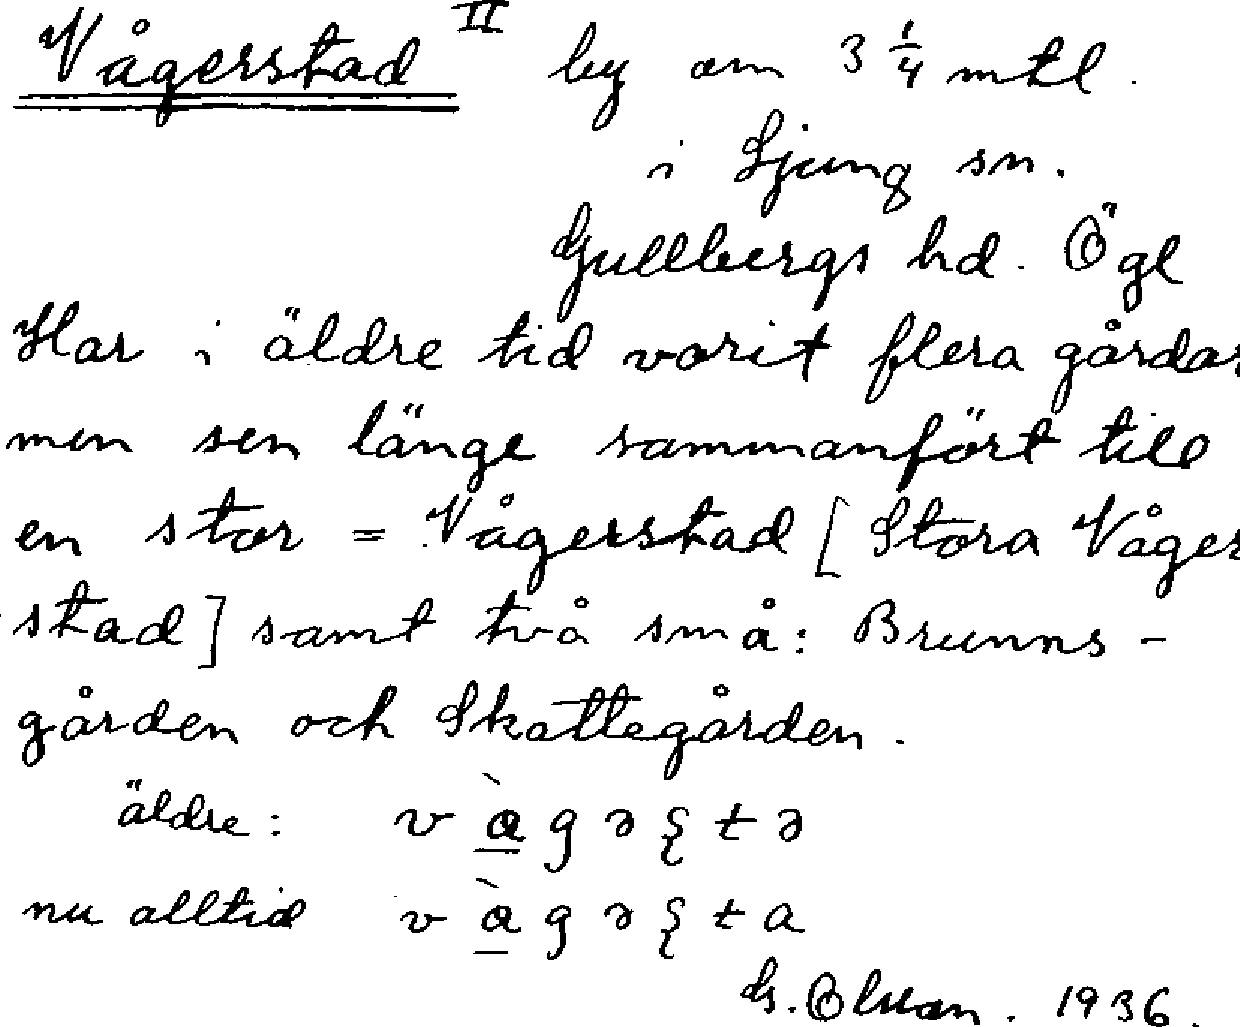 Vågerstad II by om 3 1/4 mtl.
i Ljung sn.
Gullbergs hd. Ögl
Har i äldre tid varit flera gårdar
men sen länge sammanfört till
en stor = Vågerstad [Stora Våger
-stad] samt två små: Brunns-
gården och Skattegården.
äldre:
nu alltid
G. Olsson. 1936.